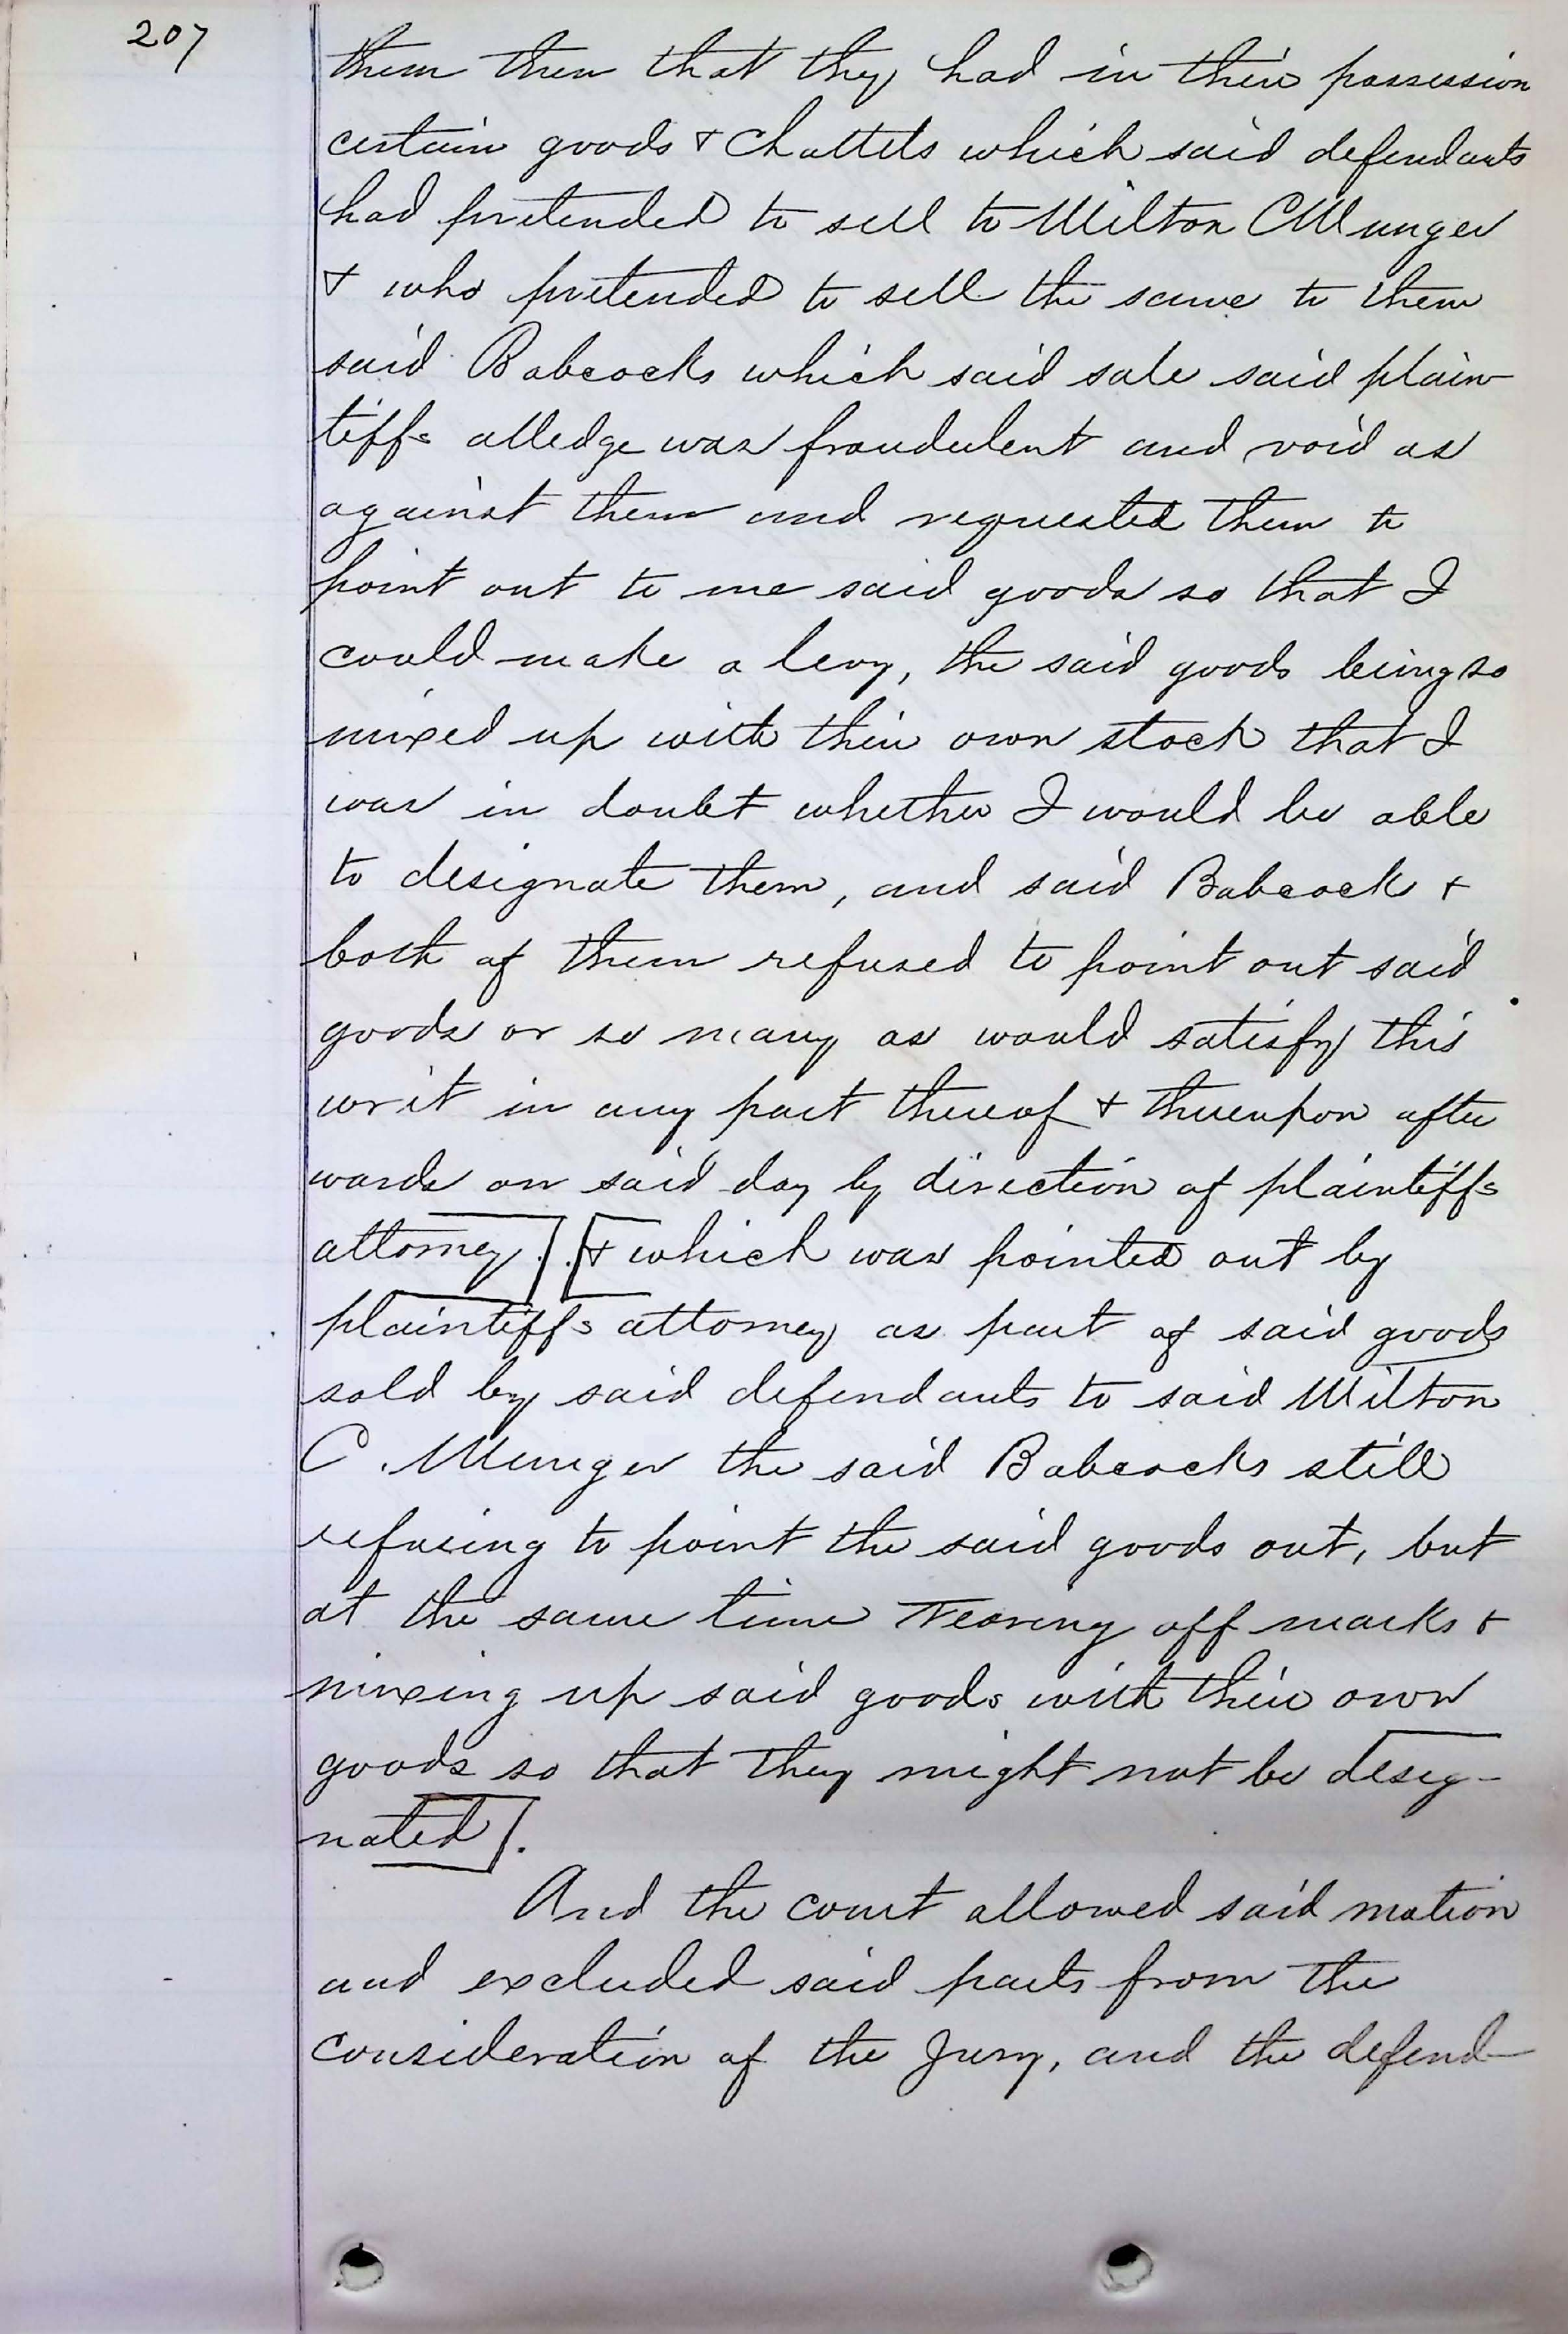 207
them then that they had in their possession
certain goods & Chattels which said defendants
had pretended to sell to Milton C Munger
& who pretended to sell the same to them
said Babcocks which said sale said plain-
tiffs alledge was fraudulent and void as
against them and requested them to
point out to me said goods so that I
could make a levy, the said goods being so
mixed up with their own stock that I
was in doubt whether I would be able
to designate them, and said Babcock &
both of them refused to point out said
goods or so many as would satisfy this
writ in any part thereof & thereupon after
wards on said day by direction of plaintiffs
attorney]. [& which was pointed out by
plaintiffs attorney as part of said goods
sold by said defendants to said Milton
C. Munger the said Babcocks still
refusing to point the said goods out, but
at the same time Tearing off marks &
mixing up said goods with their own
goods so that they might not be desig-
nated].
And the court allowed said motion
and excluded said parts from the
consideration of the Jury, and the defend-